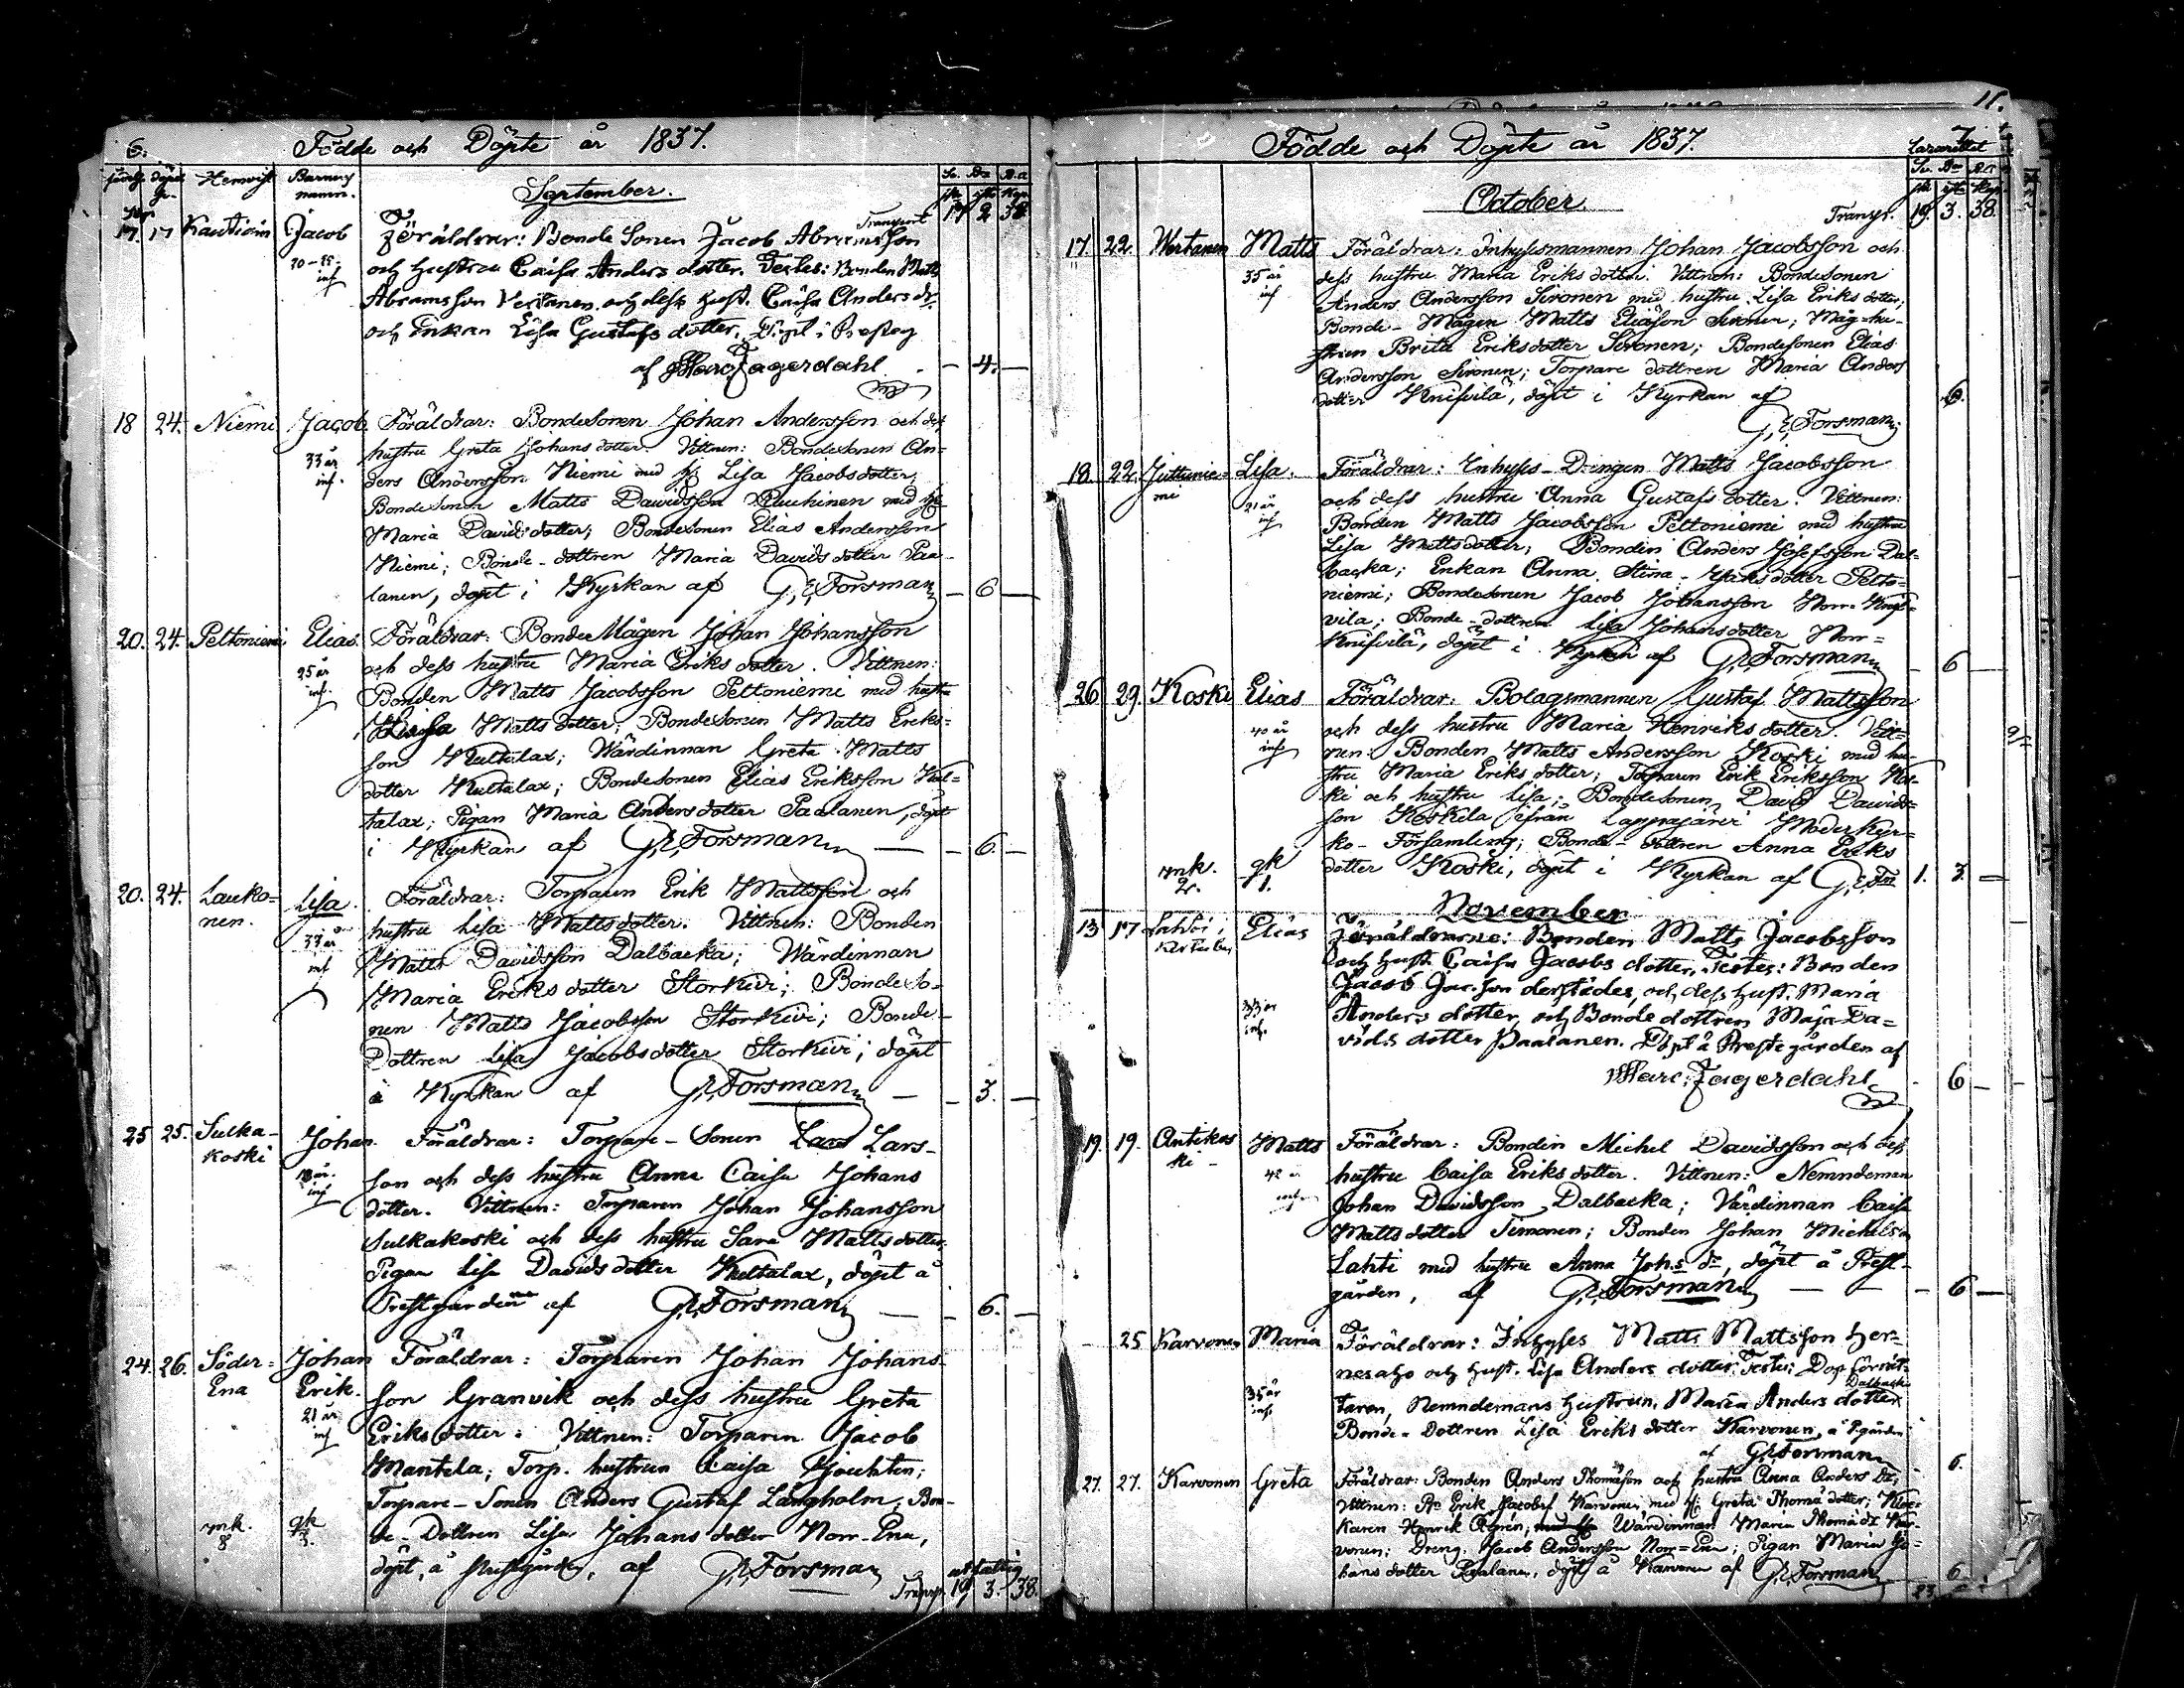 6.
Födde och Döpte år 1837.
Hemvist Barnens namn.
September.
Transport 17 2 38
17. 17 Kautiain Jacob Föräldrar: Bonde Sonen Jacob Abramsson
och hustru Caisa Anders dotter. Testes: Bonden Matts
Abramsson Vertanen och dess hust. Caisa Anders dr.
och Enkan Lisa Gustafs dotter. Döpt i Presteg
af Marc Fagerdahl — 4. —
18 24. Niemi Jacob Föräldrar: Bondesonen Johan Andersson och dess
33 år
inf.
hustru Greta Johans dotter. Vittnen: Bondesonen An=
ders Andersson Niemi med hu Lisa Jacobsdotter,
Bondesonen Matts Davidsson med hu
Maria Davids dotter; Bondesonen Elias Andersson
Niemi; Bonde-dottren Maria Davids dotter Paa-
lanen, döpt i Kyrkan af G. E. Forsman — 6 —
20. 24. Peltoniemi Elias. Föräldrar: Bonde Mågen Johan Johansson
25 år
inf.
och dess hustru Maria Eriks dotter. Vittnen:
Bonden Matts Jacobsson Peltoniemi med hustru
Matts dotter; Bondesonen Matts Eriks=
son Kultalax; Wärdinnan Greta Matts
dotter Kultalax; Bondesonen Elias Eriksson Kul=
talax; Pigan Maria Anders dotter Paalanen, döpt
i Kyrkan af G. E. Forsman — 6. —
20. 24. Lauko= Lisa. Föräldrar: Torparen Erik Mattsson och
nen.
33 år
inf
hustru Lisa Mattsdotter. Vittnen: Bonden
Matts Davidsson Dalbacka; Wärdinnan
Maria Eriks dotter Storkivi; Bondeso-
nen Matts Jacobsson Storkivi; Bonde-
Dottren Lisa Jacobsdotter Storkivi; döpt
i Kyrkan af G. E. Forsman — 3. —
25 25. Sulka- Johan. Föräldrar: Torpare-Sonen Lars Lars-
koski
inf
son och dess hustru Anna Caisa Johans
dotter. Vittnen: Torparen Johan Johansson
Sulkakoski och dess hustru Sara Mattsdotter,
Pigan Lisa Davids dotter Kultalax, döpt å
Prestgården af G. E. Forsman — 6. —
24. 26. Söder= Johan Föräldrar: Torparen Johan Johans-
Ena Erik. son Granvik och dess hustru Greta
21 år
inf
Eriks dotter: Vittnen: Torparen Jacob
Mantela; Torp. hustrun Caisa
Torpare-Sonen Anders Gustaf Långholm; Bon-
mk. 8 qk 3. de-Dottren Lisa Johans dotter Norr-Ena,
döpt, å Prestgården, af G. E. Forsman
Transp. 19 3. 38.
11.
7.
Födde och Döpte år 1837.
Lazarettet
October
Transp. 19. 3. 38.
17. 22. Wertanen Matts Föräldrar: Inhysesmannen Johan Jacobsson och
35 år
inf
dess hustru Maria Eriks dotter. Vittnen: Bondesonen
Anders Andersson Sironen med hustru Lisa Eriks dotter;
Bonde-Mågen Matts Eliasson Sironen; Måg-hu-
strun Brita Eriksdotter Sironen; Bondesonen Elias
Andersson Sironen; Torpare dottren Maria Anders
dotter Knifsilä, döpt i Kyrkan af 6.
G. E. Forsman
18. 22. Lisa. Föräldrar: Inhyses-Drengen Matts Jacobsson
21 år
inf
och dess hustru Anna Gustafs dotter. Vittnen:
Bonden Matts Jacobsson Peltoniemi med hustru
Lisa Mattsdotter; Bonden Anders Josefsson Dal=
backa; Enkan Anna Stina dotter Pelto=
niemi; Bondesonen Jacob Johansson Norr-Knif=
vila; Bonde-dottren Lisa Johansdotter Norr=
Knifsilä, döpt i Kyrkan af G. E. Forsman — 6 —
26. 29. Koski Elias Föräldrar: Bolagsmannen Gustaf Mattsson
40 år
inf
och dess hustru Maria Henriks dotter. Vitt=
nen: Bonden Matts Andersson Koski med hu-
stru Maria Eriks dotter; Torparen Erik Eriksson Kos-
ki och hustru Lisa; Bondesonen David Davids=
son Koskela ifrån Lappajärvi Moderkyr=
ko-Församling; Bonde-dottren Anna Eriks
mk. 2. qk 1. dotter Koski, döpt i Kyrkan af G. E. Fn 1. 3. —
November
13 17 Lahti, Elias Föräldrarne: Bonden Matts Jacobsson
33 år
inf.
och hust. Caisa Jacobs dotter. Testes: Bonden
Jacob Jac.son derstädes, och dess hust. Maria
Anders dotter, och Bonde dottren Maja Da=
vids dotter Paalanen. Döpt å Prestegården af
Marc: Fagerdahl — 6 —
19. 19. Antikos Matts Föräldrar: Bonden Michel Davidsson och dess
ki -
42 år
hustru Caisa Eriks dotter. Vittnen: Nemndeman
Johan Davidsson Dalbacka; Värdinnan Caisa
Matts dotter Timonen; Bonden Johan Michelsson
Lahti med hustru Anna Johs dr, döpt å Prest-
gården, af G. E. Forsman — — 6 —
25 Karvonen Maria Föräldrar: Inhyses Matts Mattsson Her=
35 år
inf.
nesaho och hust. Lisa Anders dotter. Testes:
Dalbacka
Nemndemans hustrun, Maria Anders dotter
Bonde-Dottren Lisa Eriks dotter Karvonen, å P.gården
af G. E. Forsman 6.
27. 27. Karvonen Greta Föräldrar: Bonden Anders Thomasson och hustru Anna Anders dr;
Vittnen: Erik Jacobss Karvonen med h: Greta Thomæ dotter; Kloc-
karen Henrik Wärdinnan Maria Thomæ dr Kar-
vonen; Dreng. Jacob Andersson Norr=Ena; Pigan Maria Jo=
hans dotter Paalanen, döpt å Karvonen af G. E. Forsman 6
23